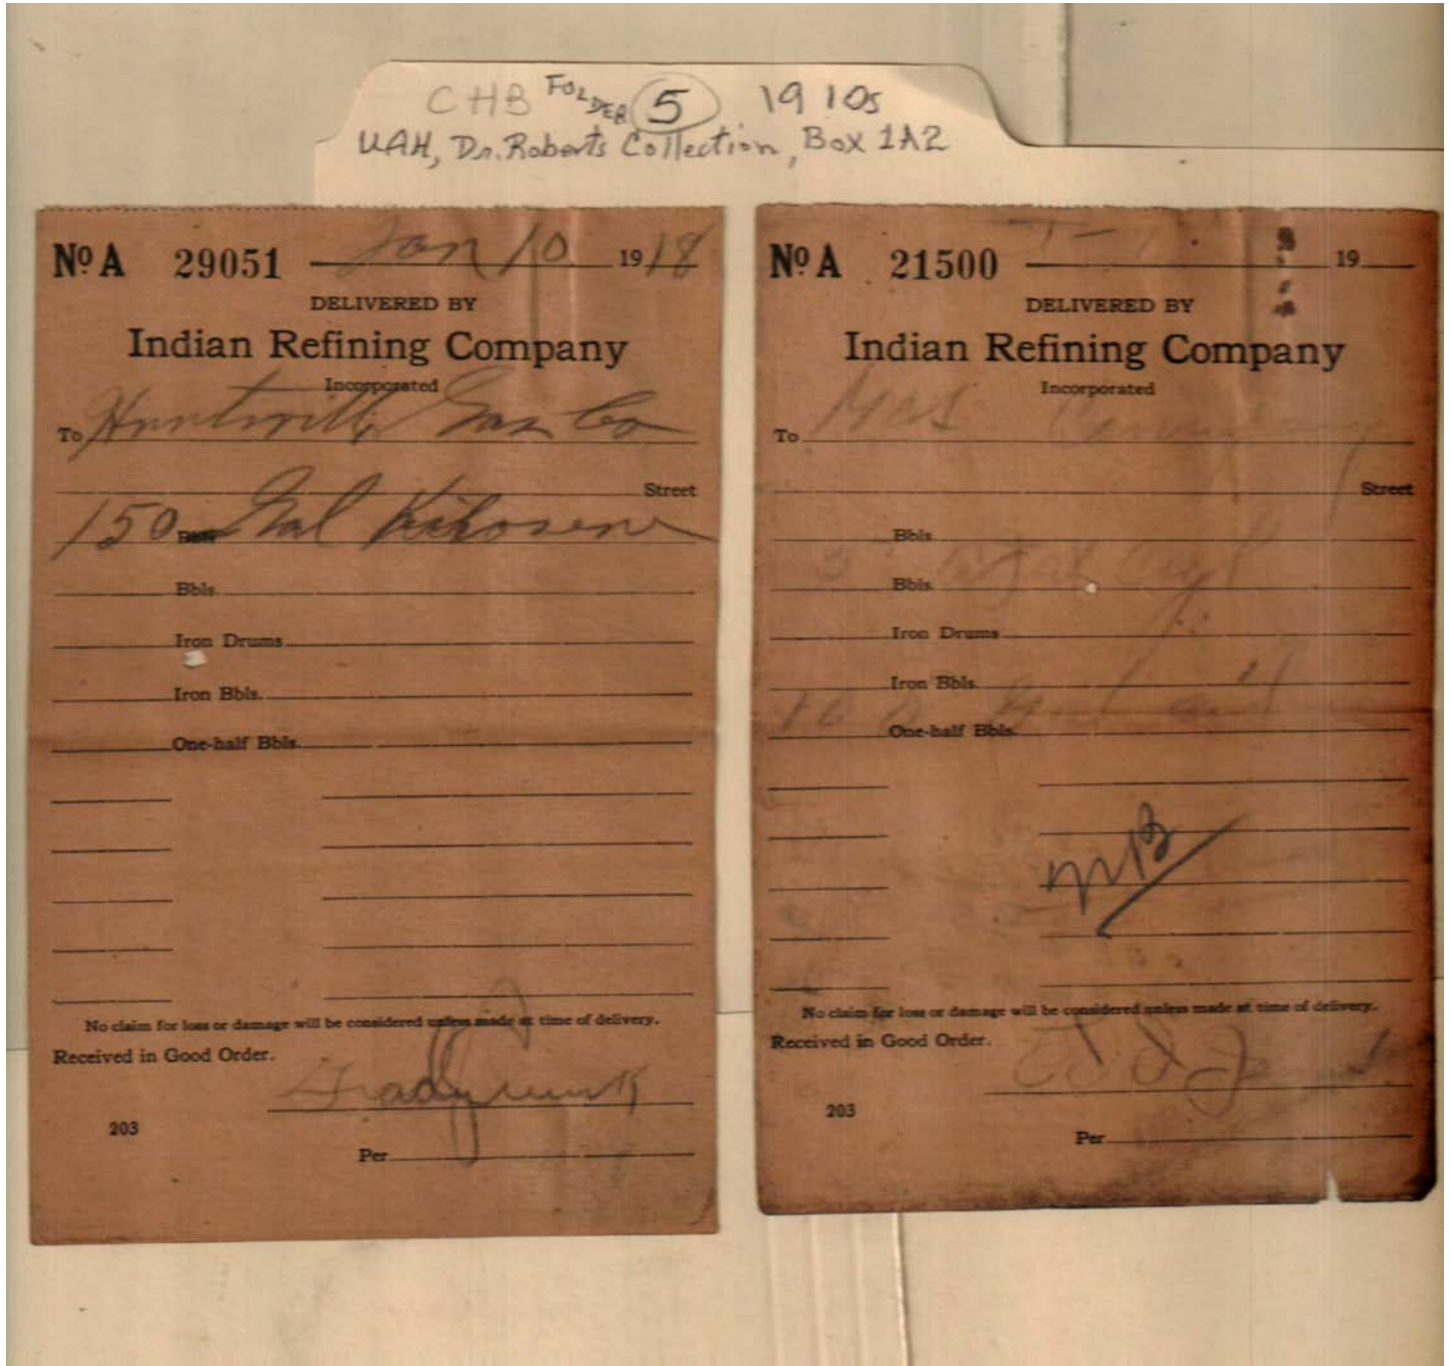 CHB FOLDER 5 1910s
UAH, Dr. Roberts Collection, Box 1A2
No A 29051 Jan 10 1918
DELIVERED BY
Indian Refining Company
Incorporated
To Huntsville Gas Co
Street
150 Bbls Gal Kerosene
Bbls.
Iron Drums
Iron Bbls.
One-half Bbls.
No claim for loss or damage will be considered unless made at time of delivery.
Received in Good Order.
Grady
203
Per
No A 21500 19
DELIVERED BY
Indian Refining Company
Incorporated
To Gas Company
Street
Bbls.
Bbls.
Iron Drums
Iron Bbls.
100 Gal
One-half Bbls.
No claim for loss or damage will be considered unless made at time of delivery.
Received in Good Order.
203
Per